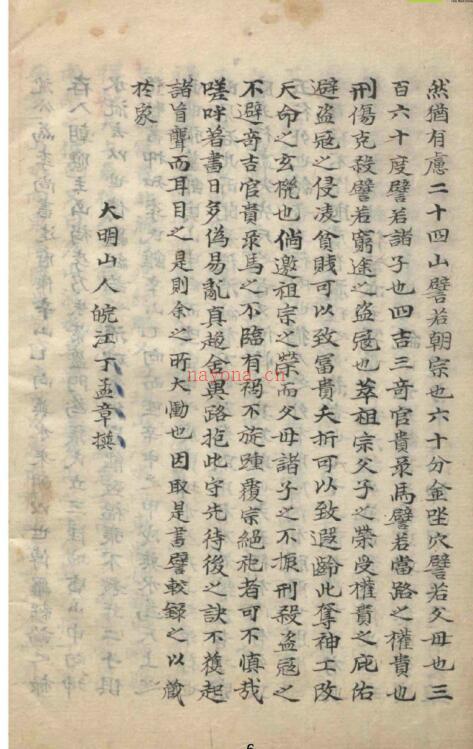 然猶有慮二十四山譬若朝宗也六十分金坐穴譬若父母也三
百六十度譬若諸子也四吉三奇官貴彔馬譬若當路之權貴也
刑傷克殺譬若窮途之盜冦也萃祖宗父子之榮受權貴之庇佑
避盜冦之侵凌貧賤可以致冨貴夭折可以致遐齡此奪神工改
天命之玄機也倘邀祖宗之榮而父母諸子之不振刑殺盗冦之
不避竒吉官貴彔馬之不臨有禍不旋踵覆宗絕祀者可不慎哉
嗟吁着書日多偽易亂真趍舍異路抱此守先待後之訣不獲起
諸旨聾而耳目之是則余之所大慟也因取是書譬較録之以藏
扵家
大明山人皖江丁孟章撰
nayona.cn
6